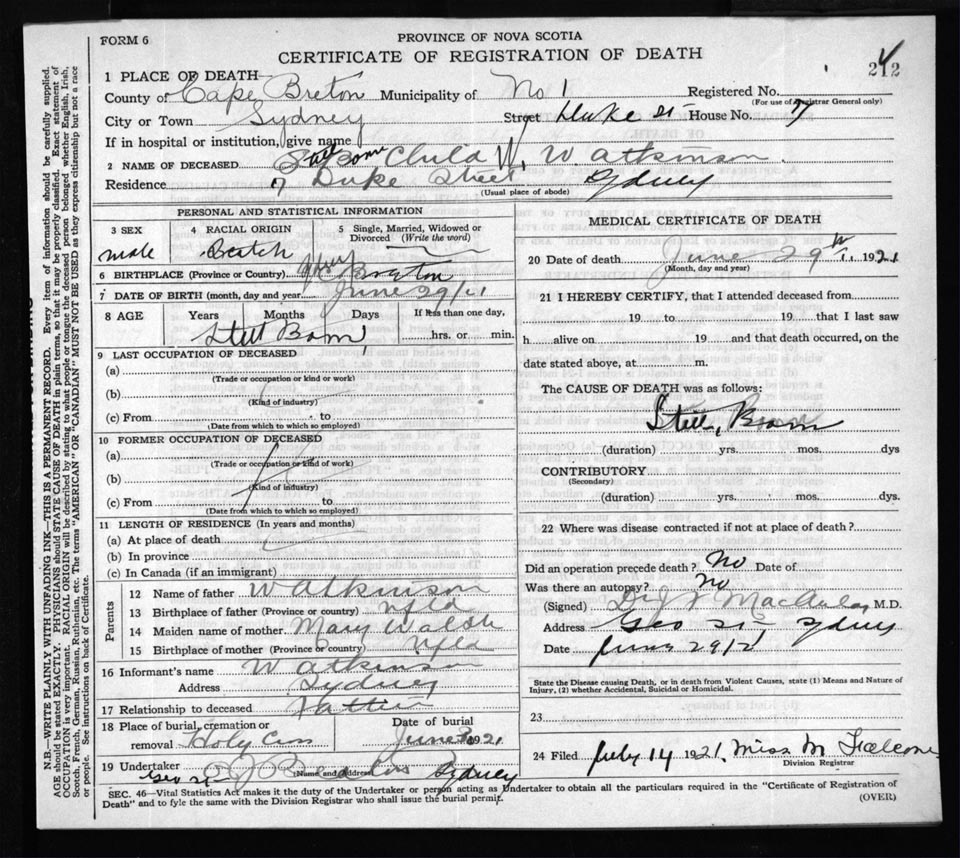 FORM 6
PROVINCE OF NOVA SCOTIA
CERTIFICATE OF REGISTRATION OF DEATH
242
1 PLACE OF DEATH—
County of Cape Breton Municipality of No 1 Registered No.
(For use of Registrar General only)
City or Town Sydney Street Duke St House No. 7
If in hospital or institution, give name
2 NAME OF DECEASED Still Born Child W. W. Atkinson
Residence 7 Duke Street Sydney
(Usual place of abode)
PERSONAL AND STATISTICAL INFORMATION
3 SEX
4 RACIAL ORIGIN
5 Single, Married, Widowed or Divorced (Write the word)
male Scotch
6 BIRTHPLACE (Province or Country) Breton
7 DATE OF BIRTH (month, day and year) June 29/21
8 AGE Years Months Days If less than one day,
Still Born hrs. or min.
9 LAST OCCUPATION OF DECEASED
(a)
(Trade or occupation or kind or work)
(b)
(Kind of industry)
(c) From to
(Date from which to which so employed)
10 FORMER OCCUPATION OF DECEASED
(a)
(Trade or occupation or kind of work)
(b)
(Kind of industry)
(c) From to
(Date from which to which so employed)
11 LENGTH OF RESIDENCE (In years and months)
(a) At place of death
(b) In province
(c) In Canada (if an immigrant)
Parents
12 Name of father W Atkinson
13 Birthplace of father (Province or country) Nfld
14 Maiden name of mother Mary Walsh
15 Birthplace of mother (Province or country) Nfld
16 Informant's name W Atkinson
Address Sydney
17 Relationship to deceased Father
18 Place of burial, cremation or removal Holy Cross
Date of burial June 30 1921
19 Undertaker Geo St Sydney
(Name and Address)
MEDICAL CERTIFICATE OF DEATH
20 Date of death June 29th 1921
(Month, day and year)
21 I HEREBY CERTIFY, that I attended deceased from
19 to 19 that I last saw
h alive on 19 and that death occurred, on the
date stated above, at m.
The CAUSE OF DEATH was as follows:
Still Born
(duration) yrs. mos. dys
CONTRIBUTORY
(Secondary)
(duration) yrs. mos. dys.
22 Where was disease contracted if not at place of death?
Did an operation precede death? No Date of
Was there an autopsy? No
(Signed) MacAulay M.D.
Address Geo St, Sydney
Date June 29/21
State the Disease causing Death, or in death from Violent Causes, state (1) Means and Nature of
Injury, (2) whether Accidental, Suicidal or Homicidal.
23
24 Filed July 14 1921. Miss M Falcone
Division Registrar
SEC. 46—Vital Statistics Act makes it the duty of the Undertaker or person acting as Undertaker to obtain all the particulars required in the "Certificate of Registration of
Death" and to fyle the same with the Division Registrar who shall issue the burial permit.
(OVER)
N.B.—WRITE PLAINLY WITH UNFADING INK—THIS IS A PERMANENT RECORD. Every item of information should be carefully supplied.
AGE should be stated EXACTLY. PHYSICIANS should STATE CAUSE OF DEATH in plain terms, so that it may be properly classified. Exact statement of
OCCUPATION is very important. RACIAL ORIGIN will be described by stating to what people or tongue the deceased person belonged whether English, Irish,
Scotch, French, German, Russian, Ruthenian, etc. The terms "AMERICAN" OR "CANADIAN" MUST NOT BE USED as they express citizenship but not a race
or people. See instructions on back of Certificate.